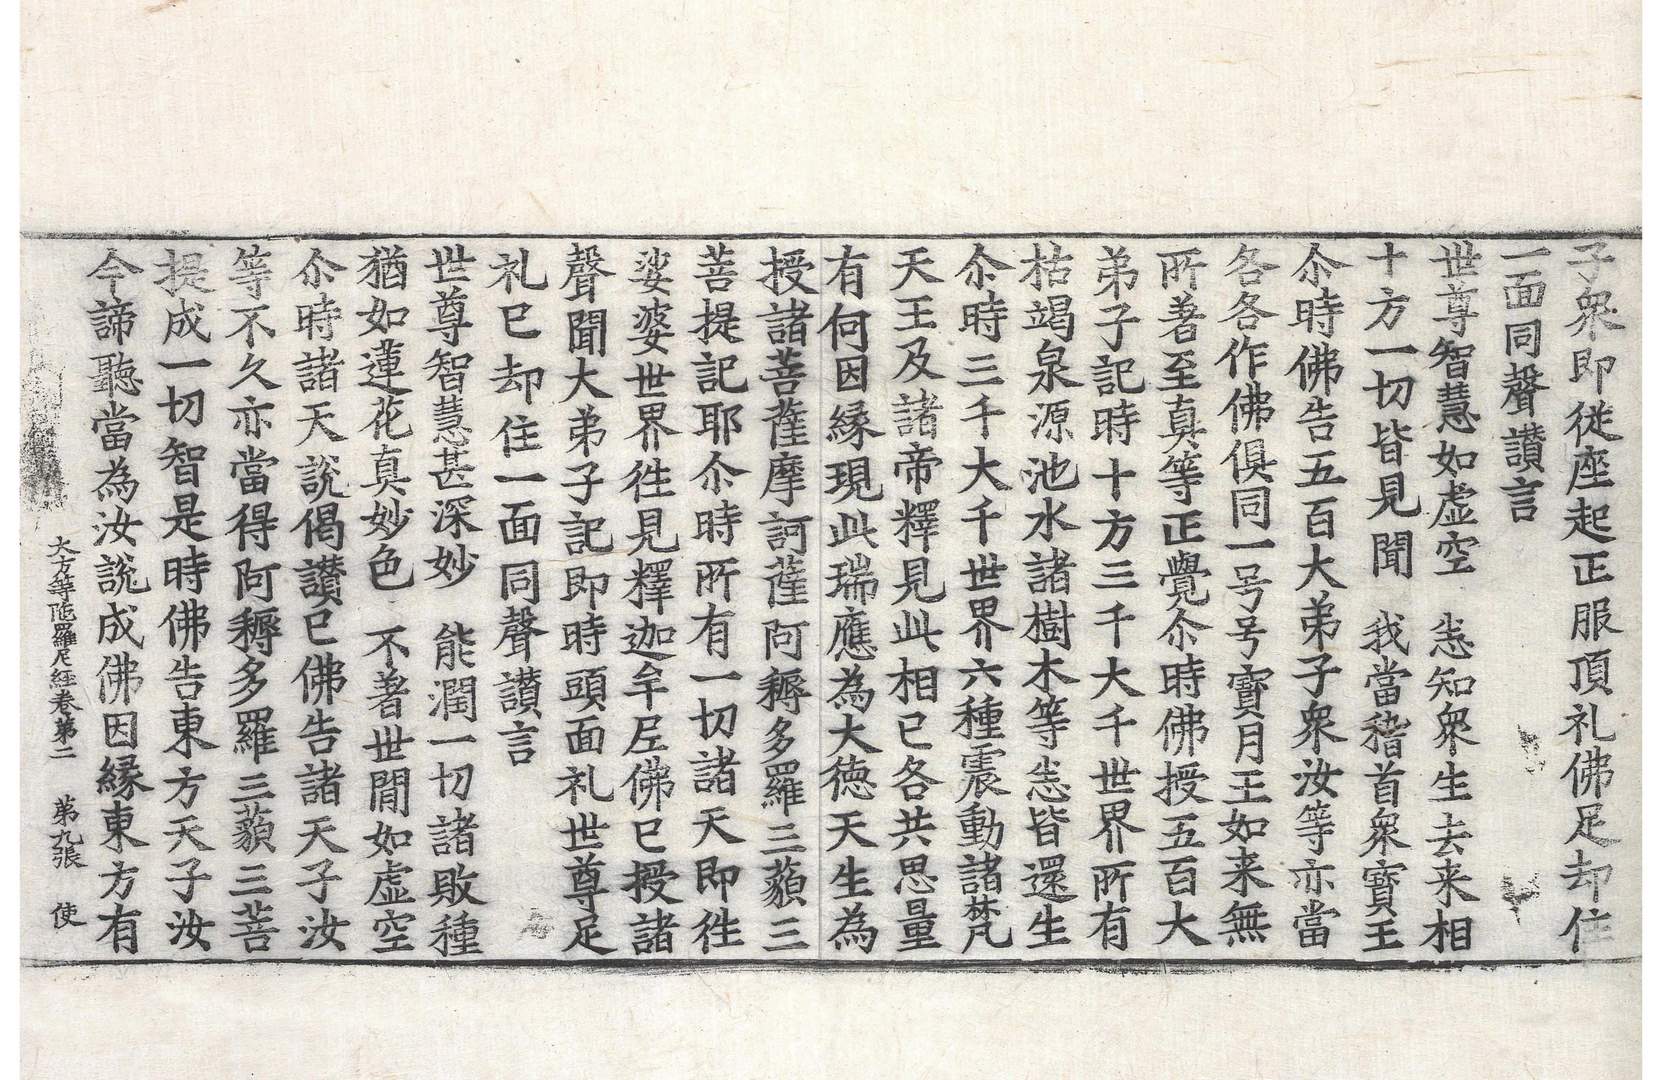 子衆即從座起正服頂礼佛足却住
一面同聲讃言
世尊智慧如虛空　悉知衆生去来相
十方一切皆見聞　我當稽首衆寶王
尒時佛告五百大弟子衆汝等亦當
各各作佛俱同一号号寶月王如来無
所著至真等正覺尒時佛授五百大
弟子記時十方三千大千世界所有
枯竭泉源池水諸樹木等悉皆還生
尒時三千大千世界六種震動諸梵
天王及諸帝釋見此相已各共思量
有何因緣現此瑞應為大德天生為
授諸菩薩摩訶薩阿耨多羅三藐三
菩提記耶尒時所有一切諸天即徃
娑婆世界徃見釋迦牟尼佛已授諸
聲聞大弟子記即時頭面礼世尊足
礼已却住一面同聲讃言
世尊智慧甚深妙　能潤一切諸敗種
猶如蓮花真妙色　不著世間如虛空
尒時諸天說偈讃已佛告諸天子汝
等不久亦當得阿耨多羅三藐三菩
提成一切智是時佛告東方天子汝
今諦聽當為汝說成佛因緣東方有
大方等陁羅尼經卷第二　第九張　使